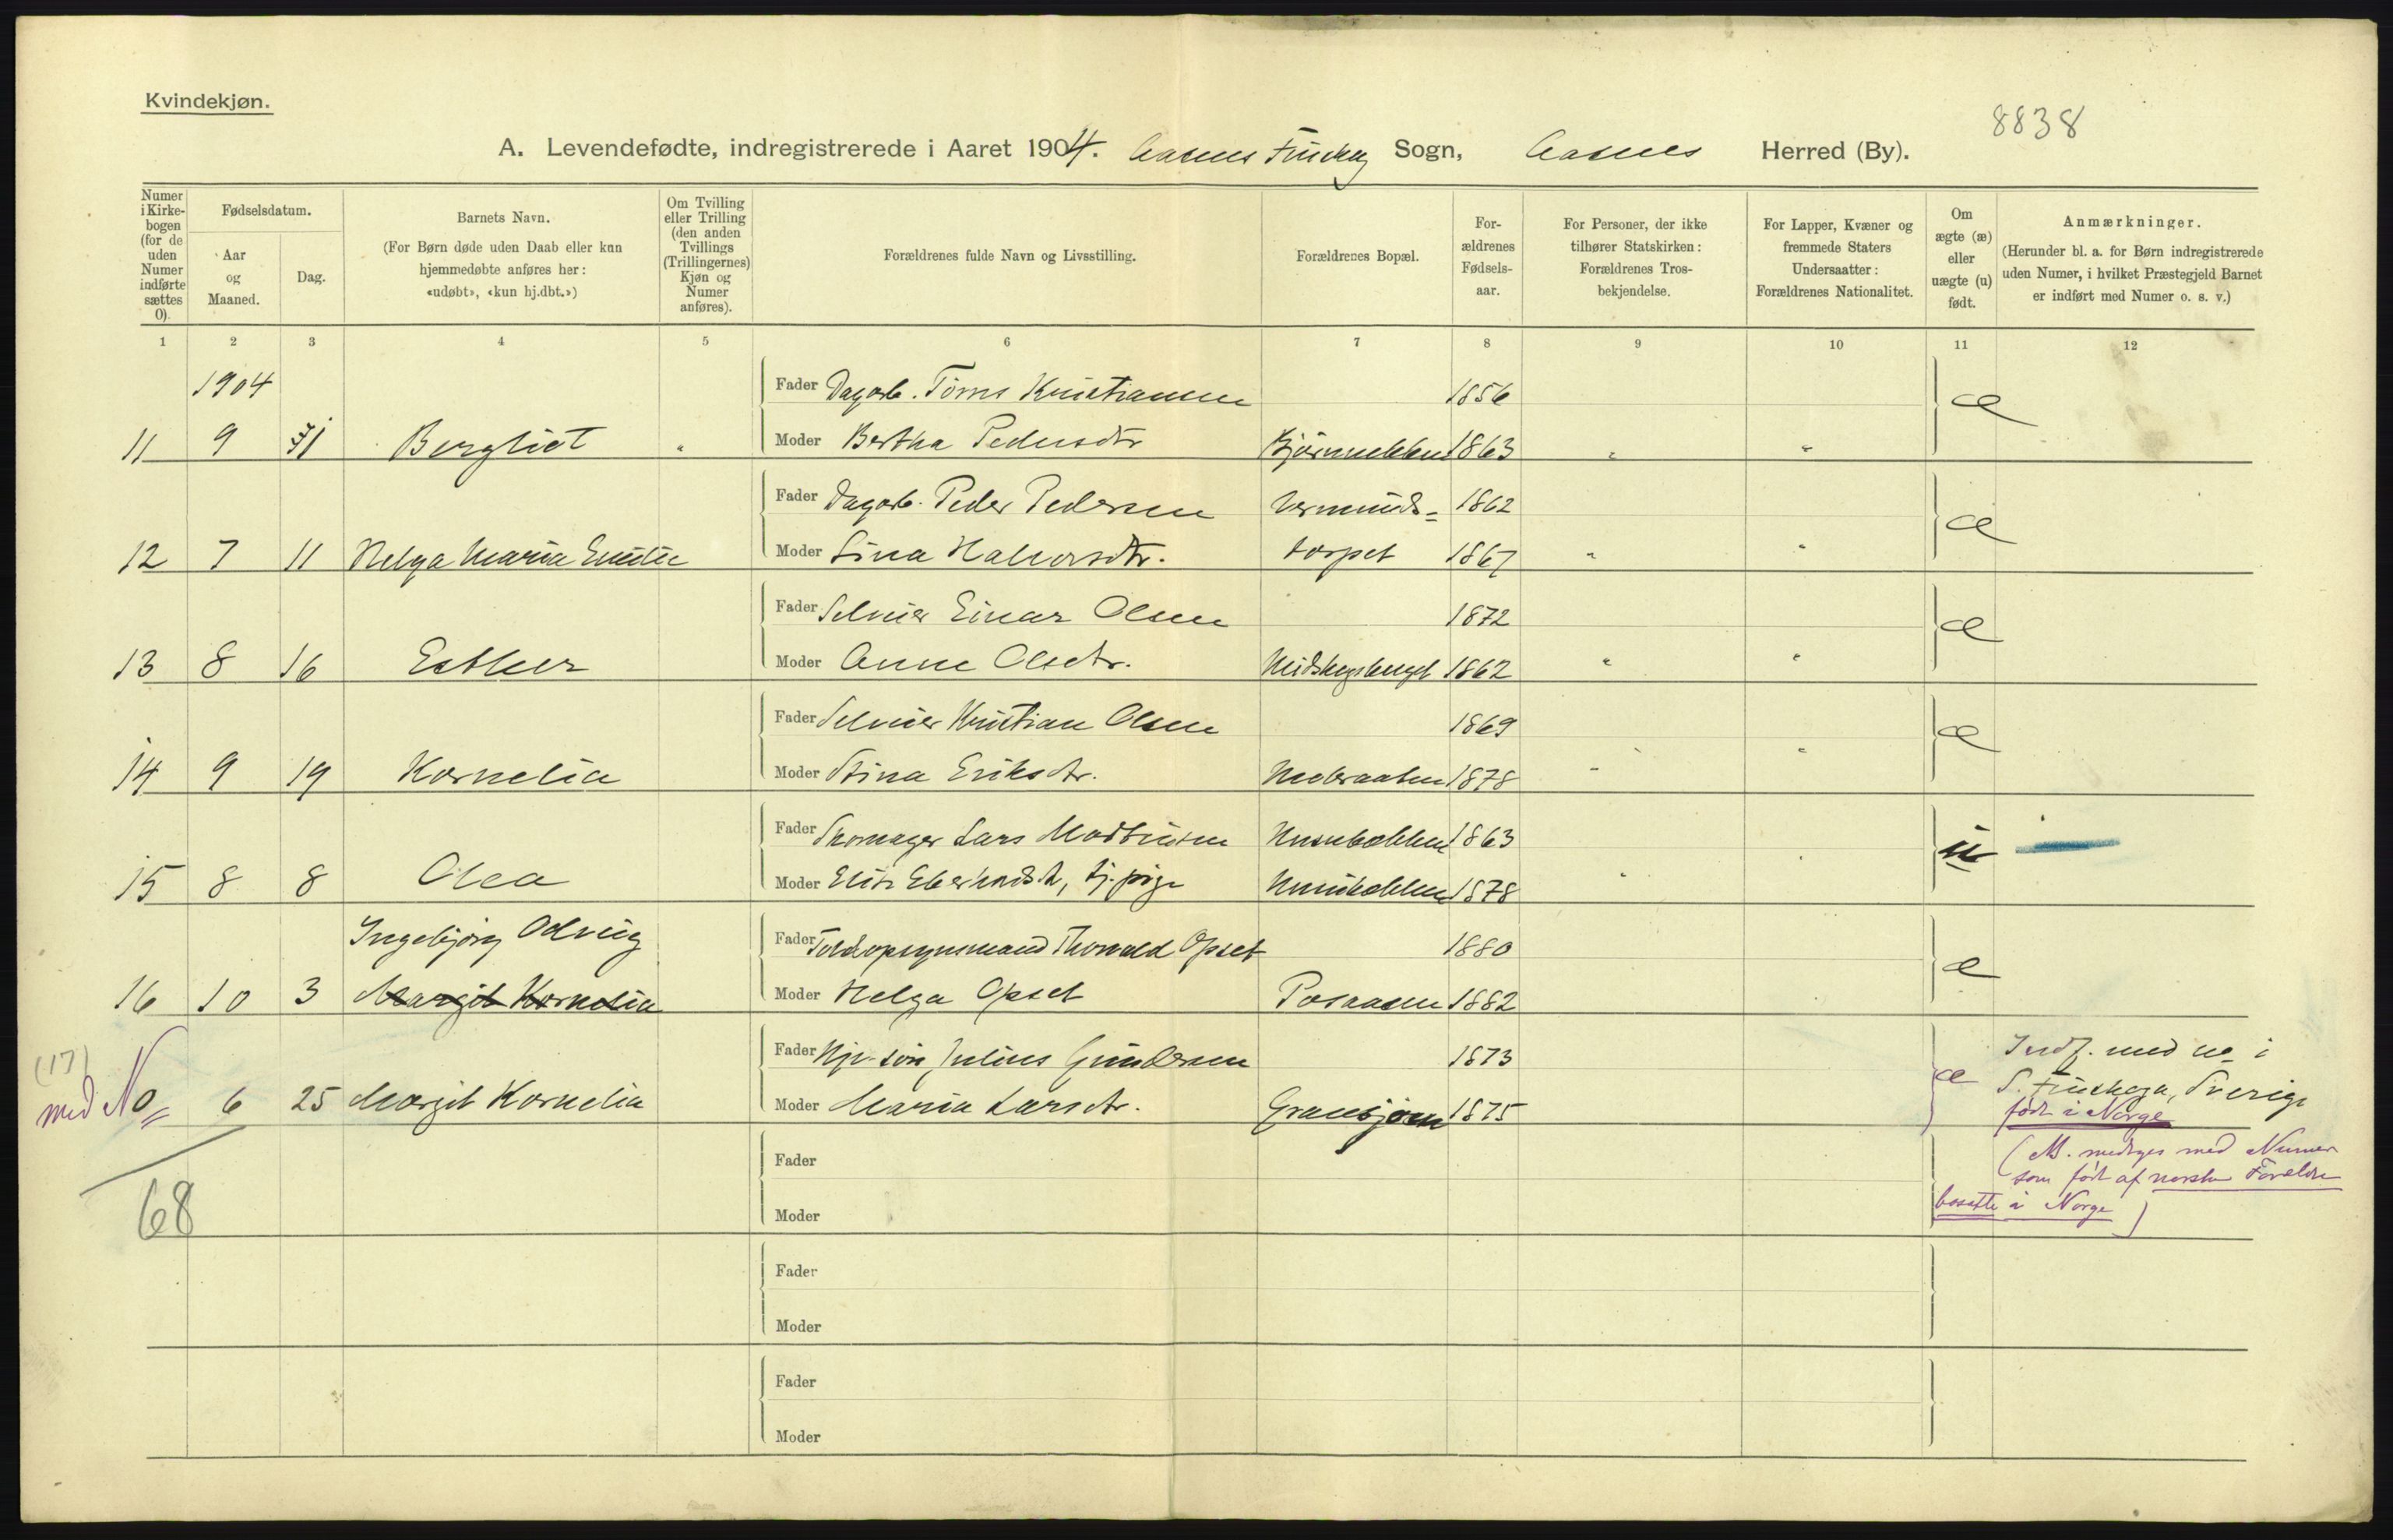 Kvindekjøn.
8838
A. Levendefødte, indregistrerede i Aaret 1904. Aasnes Finskog Sogn, Aasnes Herred (By).
Numer i Kirkebogen (for de uden Numer indførte sættes 0).
Fødselsdatum.
Aar og Maaned.
Dag.
Barnets Navn.
(For Børn døde uden Daab eller kun hjemmedøbte anføres her: «udøbt», «kun hj.dbt.»)
Om Tvilling eller Trilling (den anden Tvillings (Trillingernes) Kjøn og Numer anføres).
Forældrenes fulde Navn og Livsstilling.
Forældrenes Bopæl.
Forældrenes Fødselsaar.
For Personer, der ikke tilhører Statskirken: Forældrenes Trosbekjendelse.
For Lapper, Kvæner og fremmede Staters Undersaatter: Forældrenes Nationalitet.
Om ægte (æ) eller uægte (u) født.
Anmærkninger.
(Herunder bl. a. for Børn indregistrerede uden Numer, i hvilket Præstegjeld Barnet er indført med Numer o. s. v.)
1 2 3 4 5 6 7 8 9 10 11 12
1904 Fader Dagarb. Törns Kristiansen 1856 æ
11 9 Bergliot " Moder Bertha Pedersdtr 1863 " "
Fader Dagarb. Peder Pedersen Vermunds- 1862 æ
12 7 11 Helga Maria Emilie Moder Lina Halvorsdtr. torpet 1867 " "
Fader Selveier Einar Olsen 1872 æ
13 8 16 Esther Moder Anne Olsdtr. 1862 " "
Fader Selveier Kristian Olsen 1869 æ
14 9 19 Kornelia Moder Stina Eriksdtr. 1878 " "
Fader Skomager Lars Mortinsen 1863 u
15 8 8 Olea Moder Elise tj. pige 1878 "
Ingebjørg Odveig Fader Toldopsynsmand Thorvald Opset 1880 æ
16 10 3 Margit Kornelia Moder Helga Opset Posaasen 1882
(17) Fader Julius Gundersen 1873 Indf. med no i
med No 0 6 25 Margit Kornelia Moder Maria Larsdtr. 1875 æ S. Finskoga, Sverige
født i Norge
(M. medtages med Numer
som født af norske Forældre
bosatte i Norge)
68
Fader
Moder
Fader
Moder
Fader
Moder